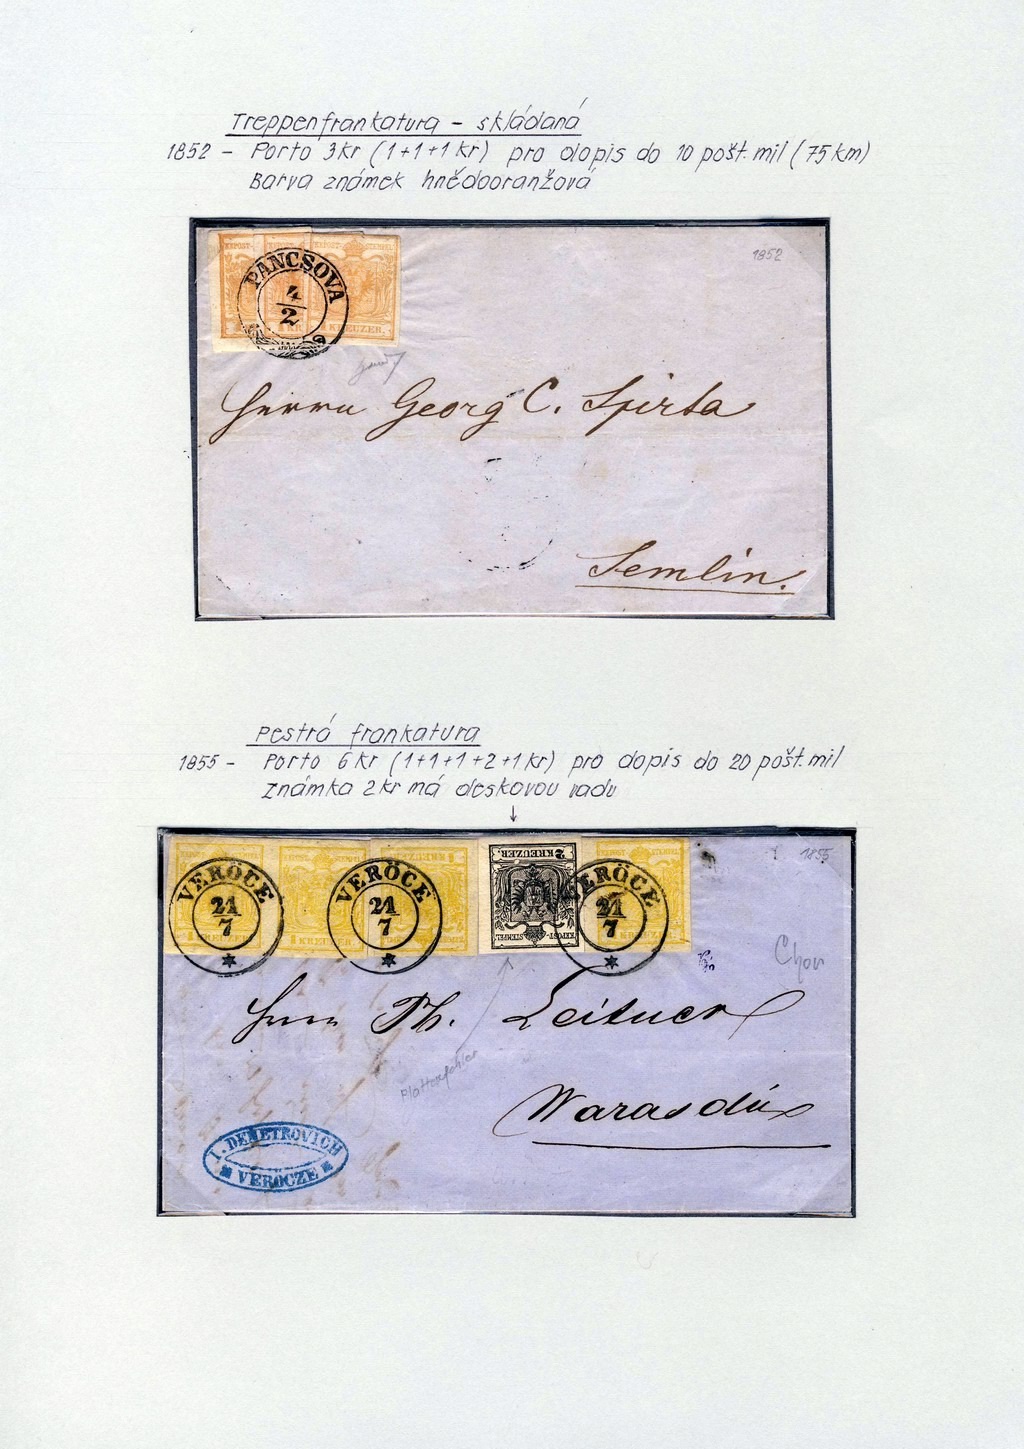 Treppenfrankatura - skládaná
1852 - Porto 3kr (1+1+1kr) pro dopis do 10 pošt. mil (75 km)
Barva známek hnědooranžová
1852
KKPOST-
STEMPEL
PANCSOVA
4
2
1 KREUZER.
Herrn Georg C. Spirta
Semlin.
Pestrá frankatura
1855 - Porto 6 kr (1+1+1+2+1kr) pro dopis do 20 pošt. mil
Známka 2kr má deskovou vadu
↓
1855
2 KREUZER.
KKPOST-STEMPEL
VERÖCE
21
7
VERÖCE
21
7
VERÖCE
21
7
1 KREUZER
Herrn Th. Leitner
Plattenfehler
Warasdin
I. DEMETROVICH
VERÖCZE